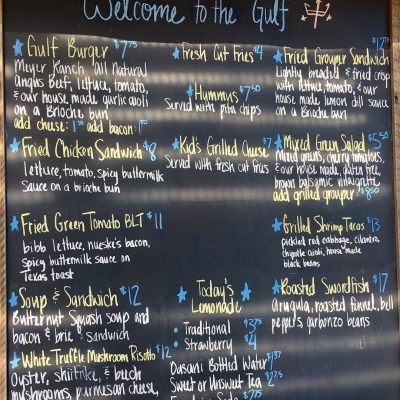 Welcome to the Gulf
Gulf Burger $7.75
Meyer Ranch all Natural
Angus Beef, lettuce, tomato,
& our house made garlic aioli
on a Brioche bun
add cheese: 1.50 add bacon: 1.50
Fried Chicken Sandwich $8
lettuce, tomato, spicy buttermilk
sauce on a brioche bun
Fried Green Tomato BLT $11
bibb lettuce, nueske's bacon,
spicy buttermilk sauce on
Texas toast
Soup & Sandwich $12
Butternut Squash soup and
bacon & brie sandwich
White Truffle Mushroom Risotto $12
Oyster, shiitake, & beech
mushrooms, parmesan cheese,
Fresh Cut Fries $4
Hummus $7.50
Served with pita chips
Kid's Grilled Cheese $7
Served with fresh cut fries
Today's
Lemonade
Traditional $3.75
Strawberry $4
Dasani Bottled Water
Sweet or Unsweet Tea
Fried Grouper Sandwich
Lightly breaded & fried crisp
with lettuce, tomato, & our
house made lemon dill sauce
on a Brioche bun
Mixed Green Salad $5.50
Mixed greens, cherry tomatoes,
& our house made, gluten free,
brown balsamic vinaigrette
add grilled grouper:
Grilled Shrimp Tacos $13
pickled red cabbage, cilantro,
chipotle aioli, house made
black beans
Roasted Swordfish $17
arugula, roasted fennel, bell
peppers, garbonzo beans